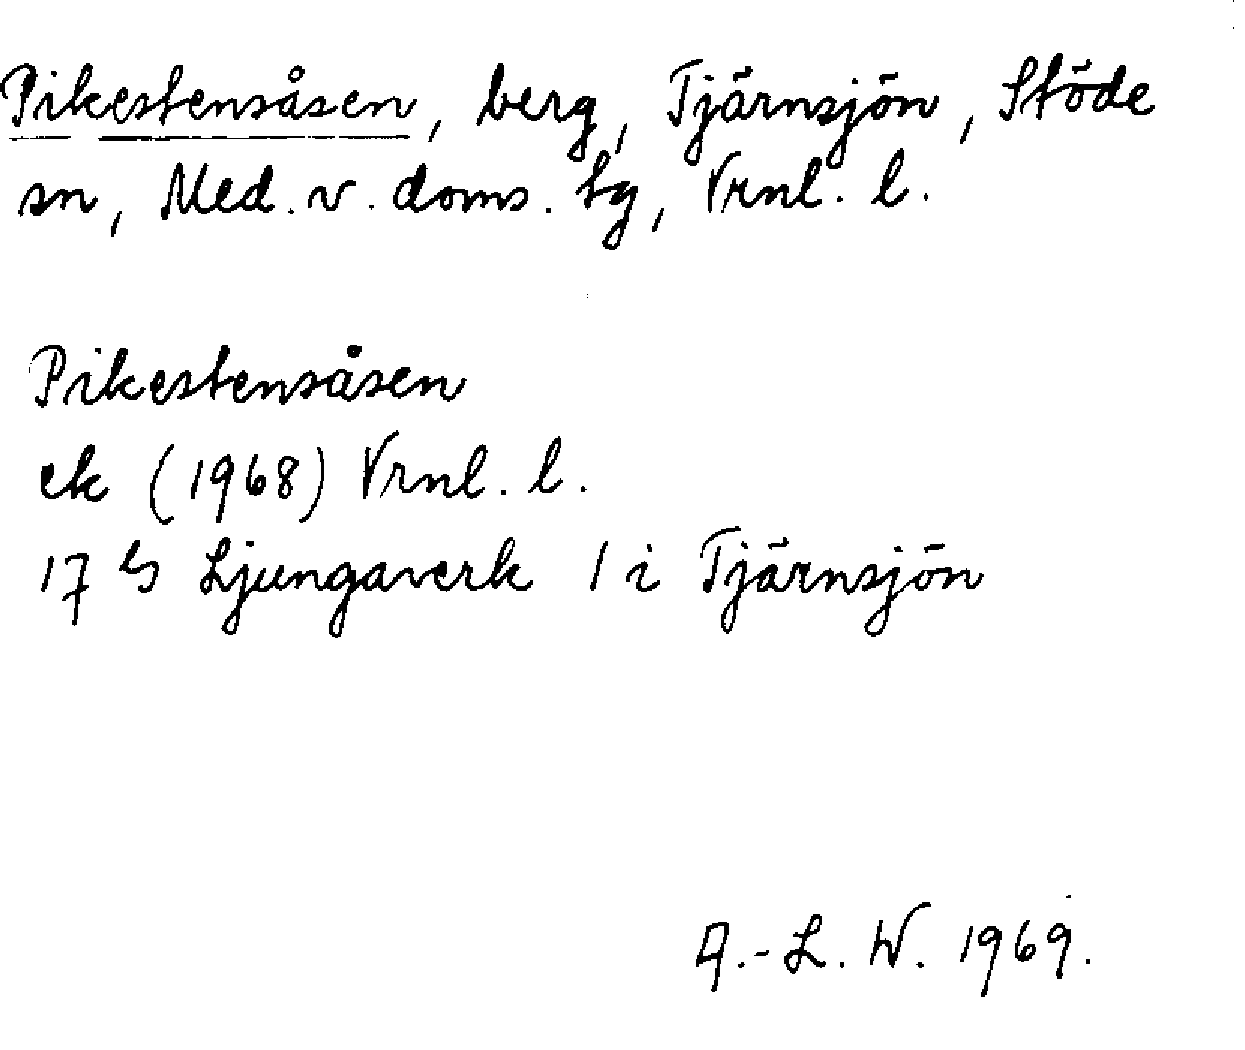 Pikestensåsen, berg, Tjärnsjön, Stöde
sn, Med. v. doms. tg, Vrnl. l.
Pikestensåsen
ek (1968) Vrnl. l.
17 G Ljungaverk 1 i Tjärnsjön
A.-L. W. 1969.